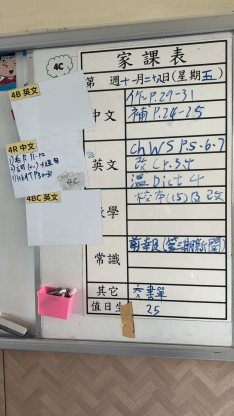 4C
家課表
第 週十一月二十九日(星期五)
4B 英文
中文
作P.29-31
補P.24-25
4R 中文
4C
英文
Ch WS P.5-6-7
Gr. 3.4
溫 Dict 4
4BC 英文
數學
校本(15)及改
常識
剪報(第三期新聞)
其它
交書單
值日生
25